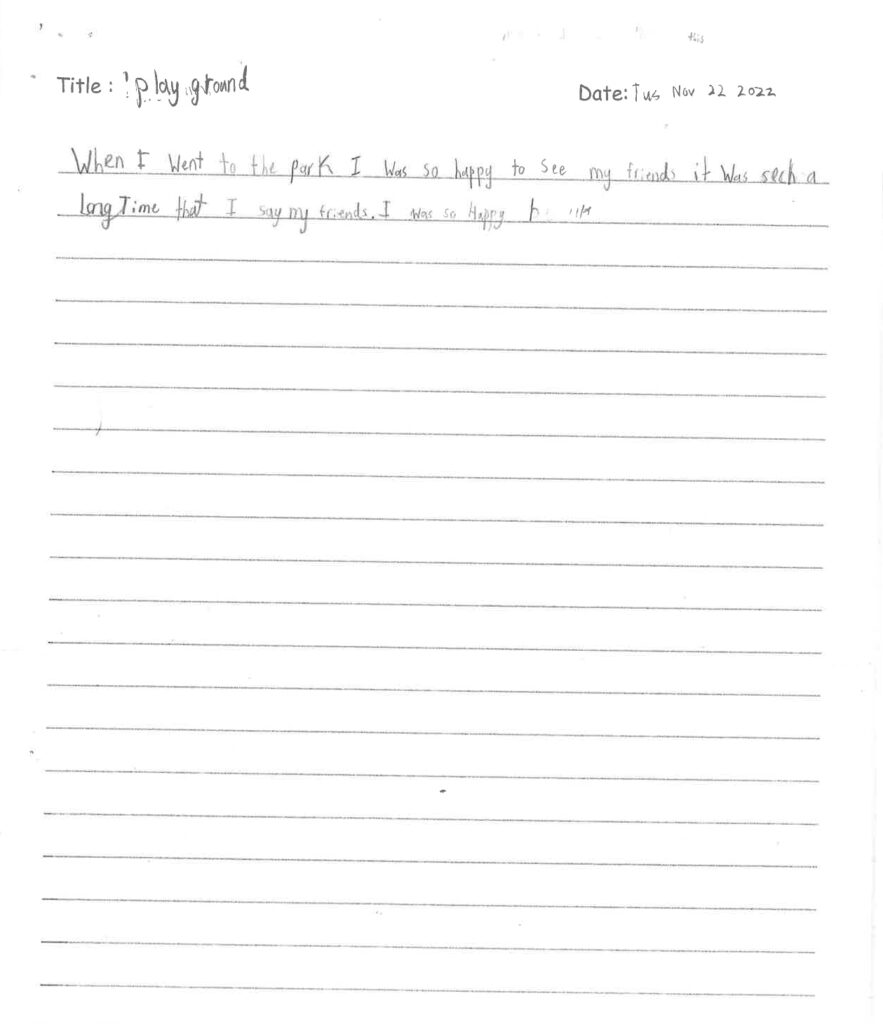 this
Title : play ground
Date: Tus Nov 22 2022
When I Went to the park I Was so happy to see my friends it Was sech a
long Time that I say my friends. I was so Happy